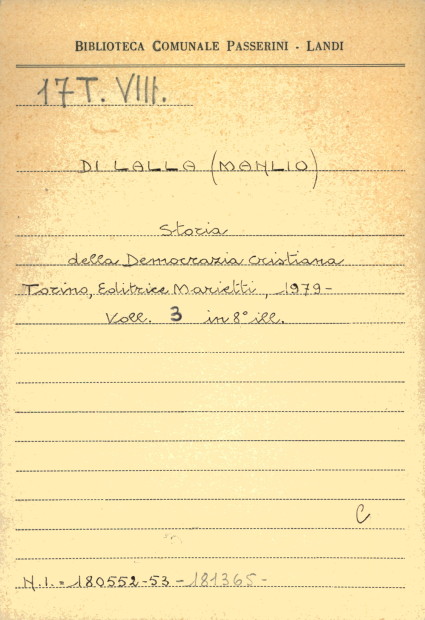 BIBLIOTECA COMUNALE PASSERINI - LANDI
17 T. VIII.
DI LALLA (MANLIO)
Storia
della Democrazia cristiana
Torino, Editrice Marietti, 1979-
Voll. 3 in 8° ill.
C
N.I. = 180552-53-181365-